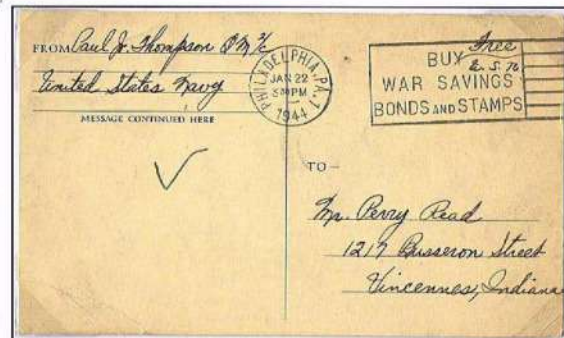 FROM Paul J. Thompson QM 2/c
United States Navy
MESSAGE CONTINUED HERE
PHILADELPHIA, PA. 1
JAN 22
PM
1944
Free
BUY
WAR SAVINGS
BONDS AND STAMPS
TO—
Mr. Perry Read
1217 Busseron Street
Vincennes, Indiana